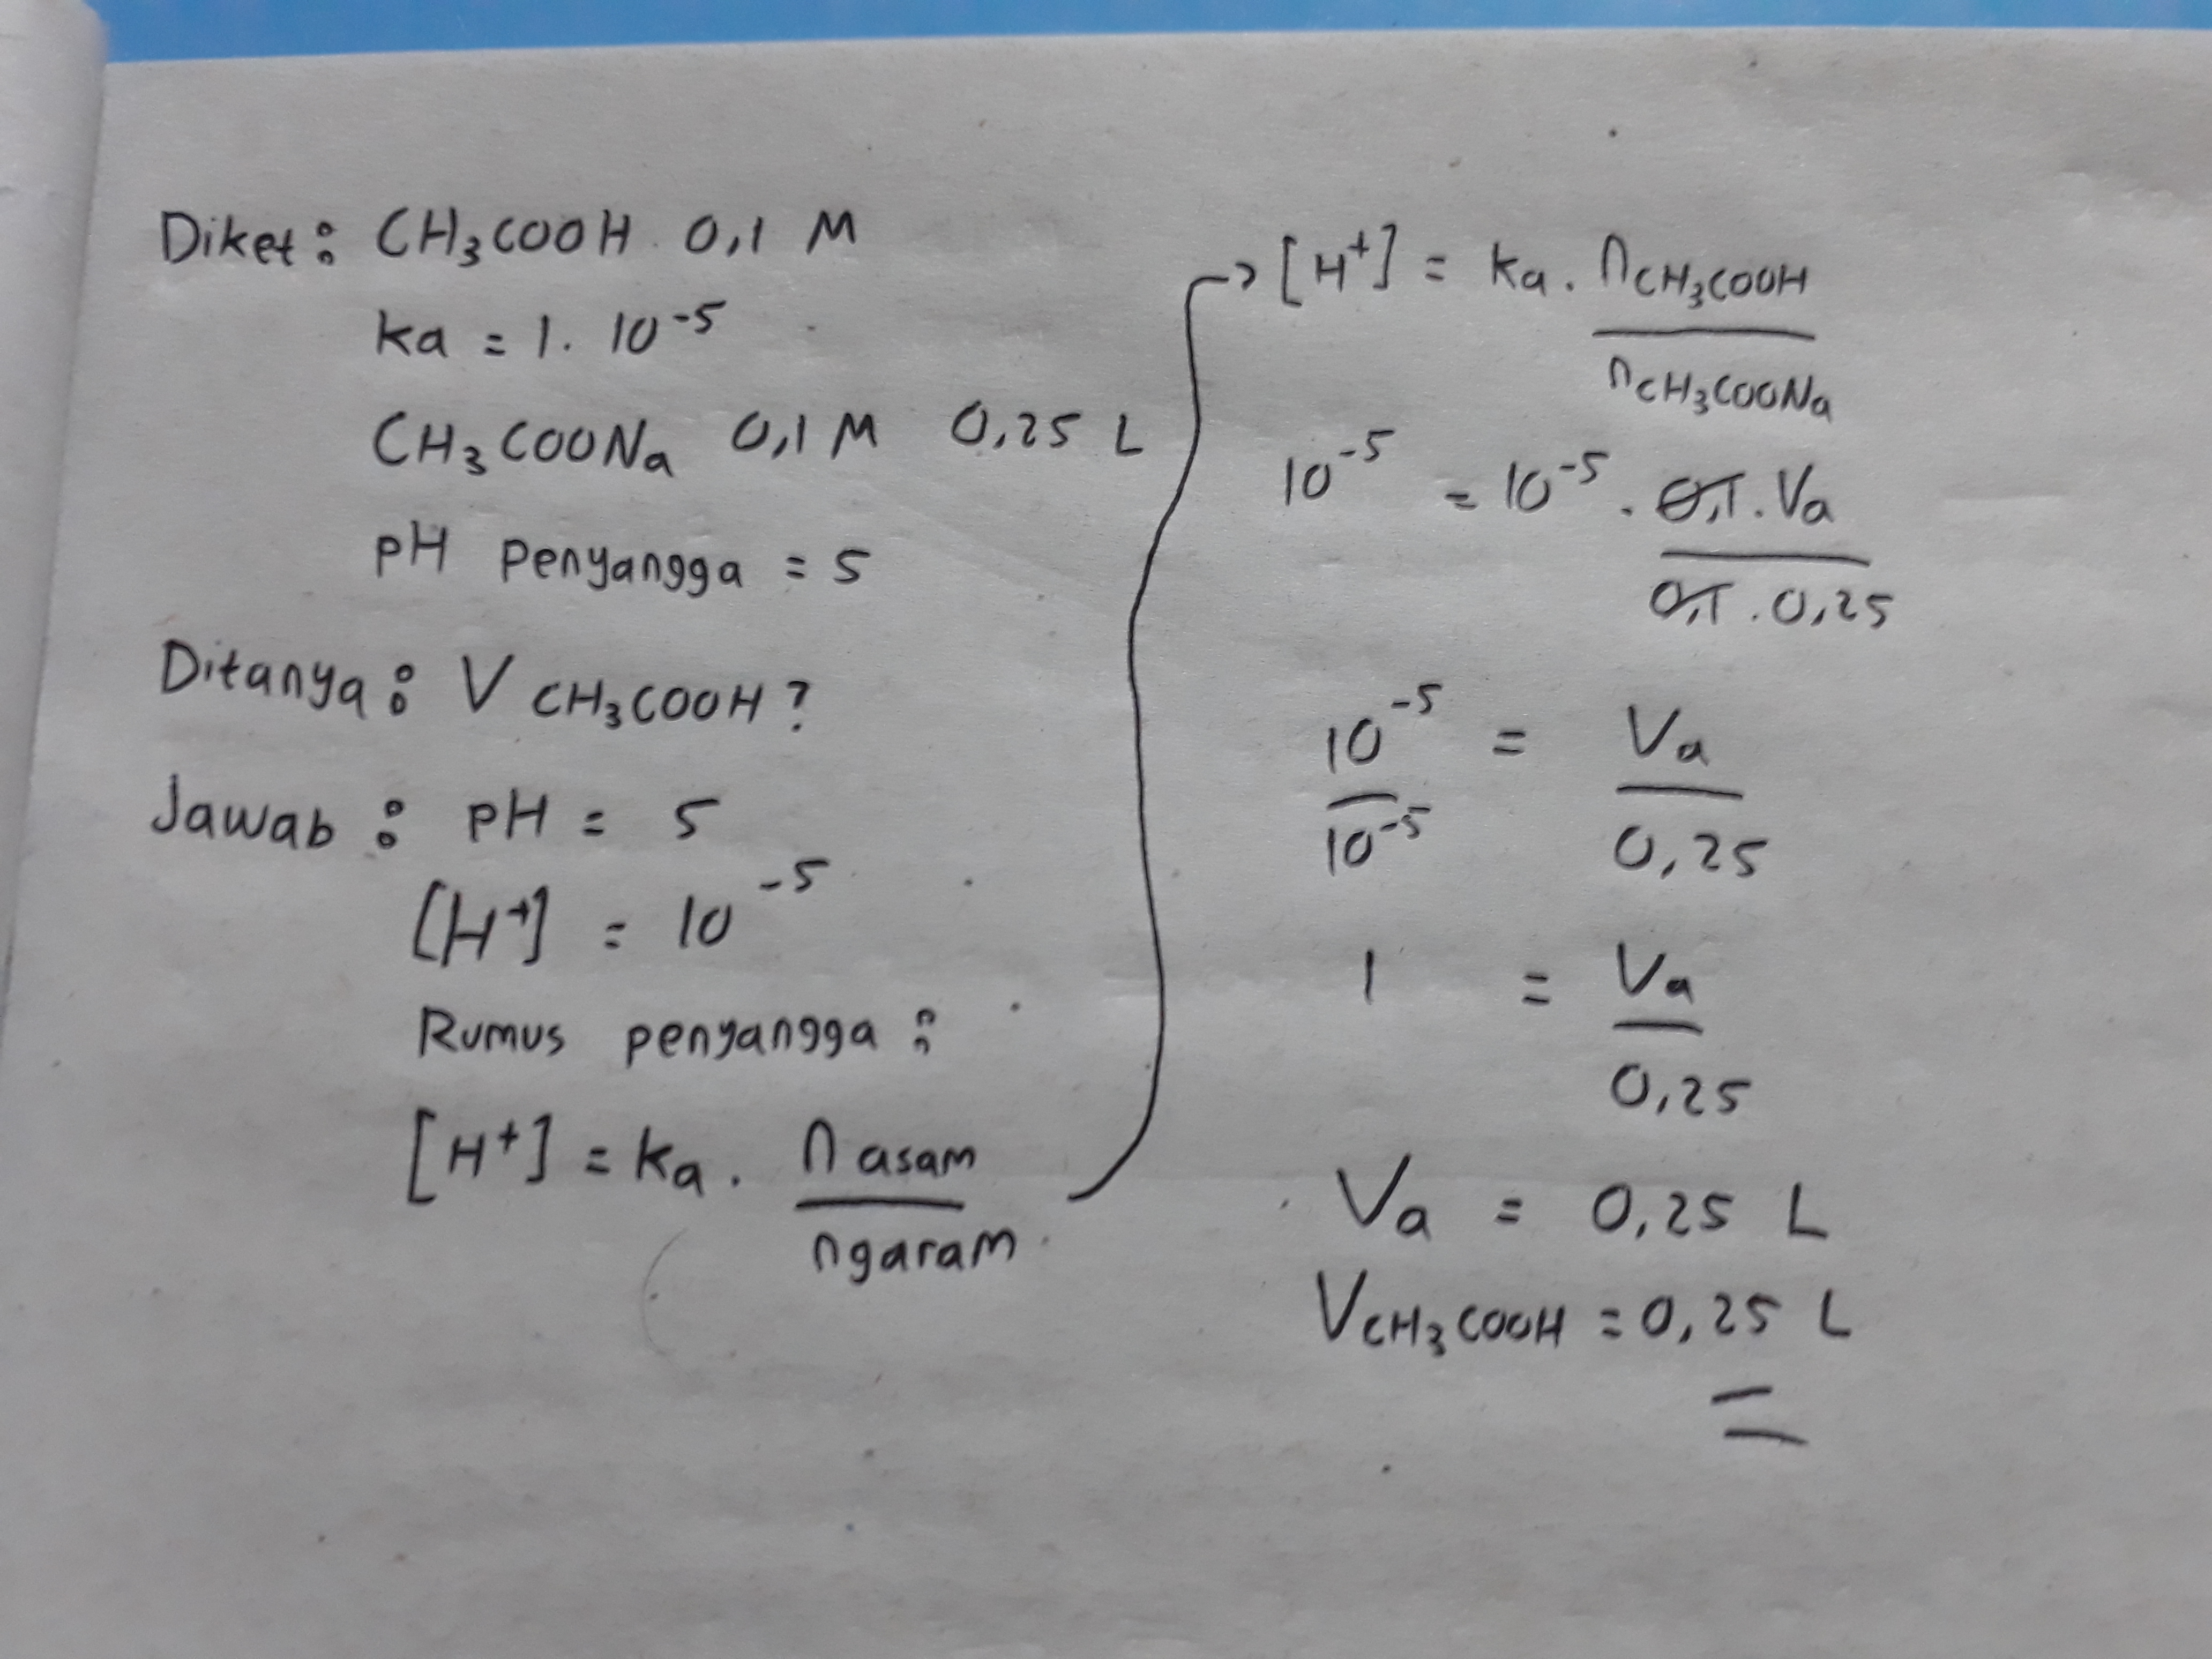 Diket : CH₃COOH 0,1 M
ka = 1. 10⁻⁵
CH₃COONa 0,1 M 0,25 L
pH penyangga = 5
Ditanya : V CH₃COOH ?
Jawab : pH = 5
[H⁺] = 10⁻⁵
Rumus penyangga :
[H⁺] = ka . n asam
n garam
→ [H⁺] = ka . nCH₃COOH
nCH₃COONa
10⁻⁵ = 10⁻⁵ . 0,1 . Va
0,1 . 0,25
10⁻⁵ = Va
10⁻⁵ 0,25
1 = Va
0,25
Va = 0,25 L
VCH₃COOH = 0,25 L